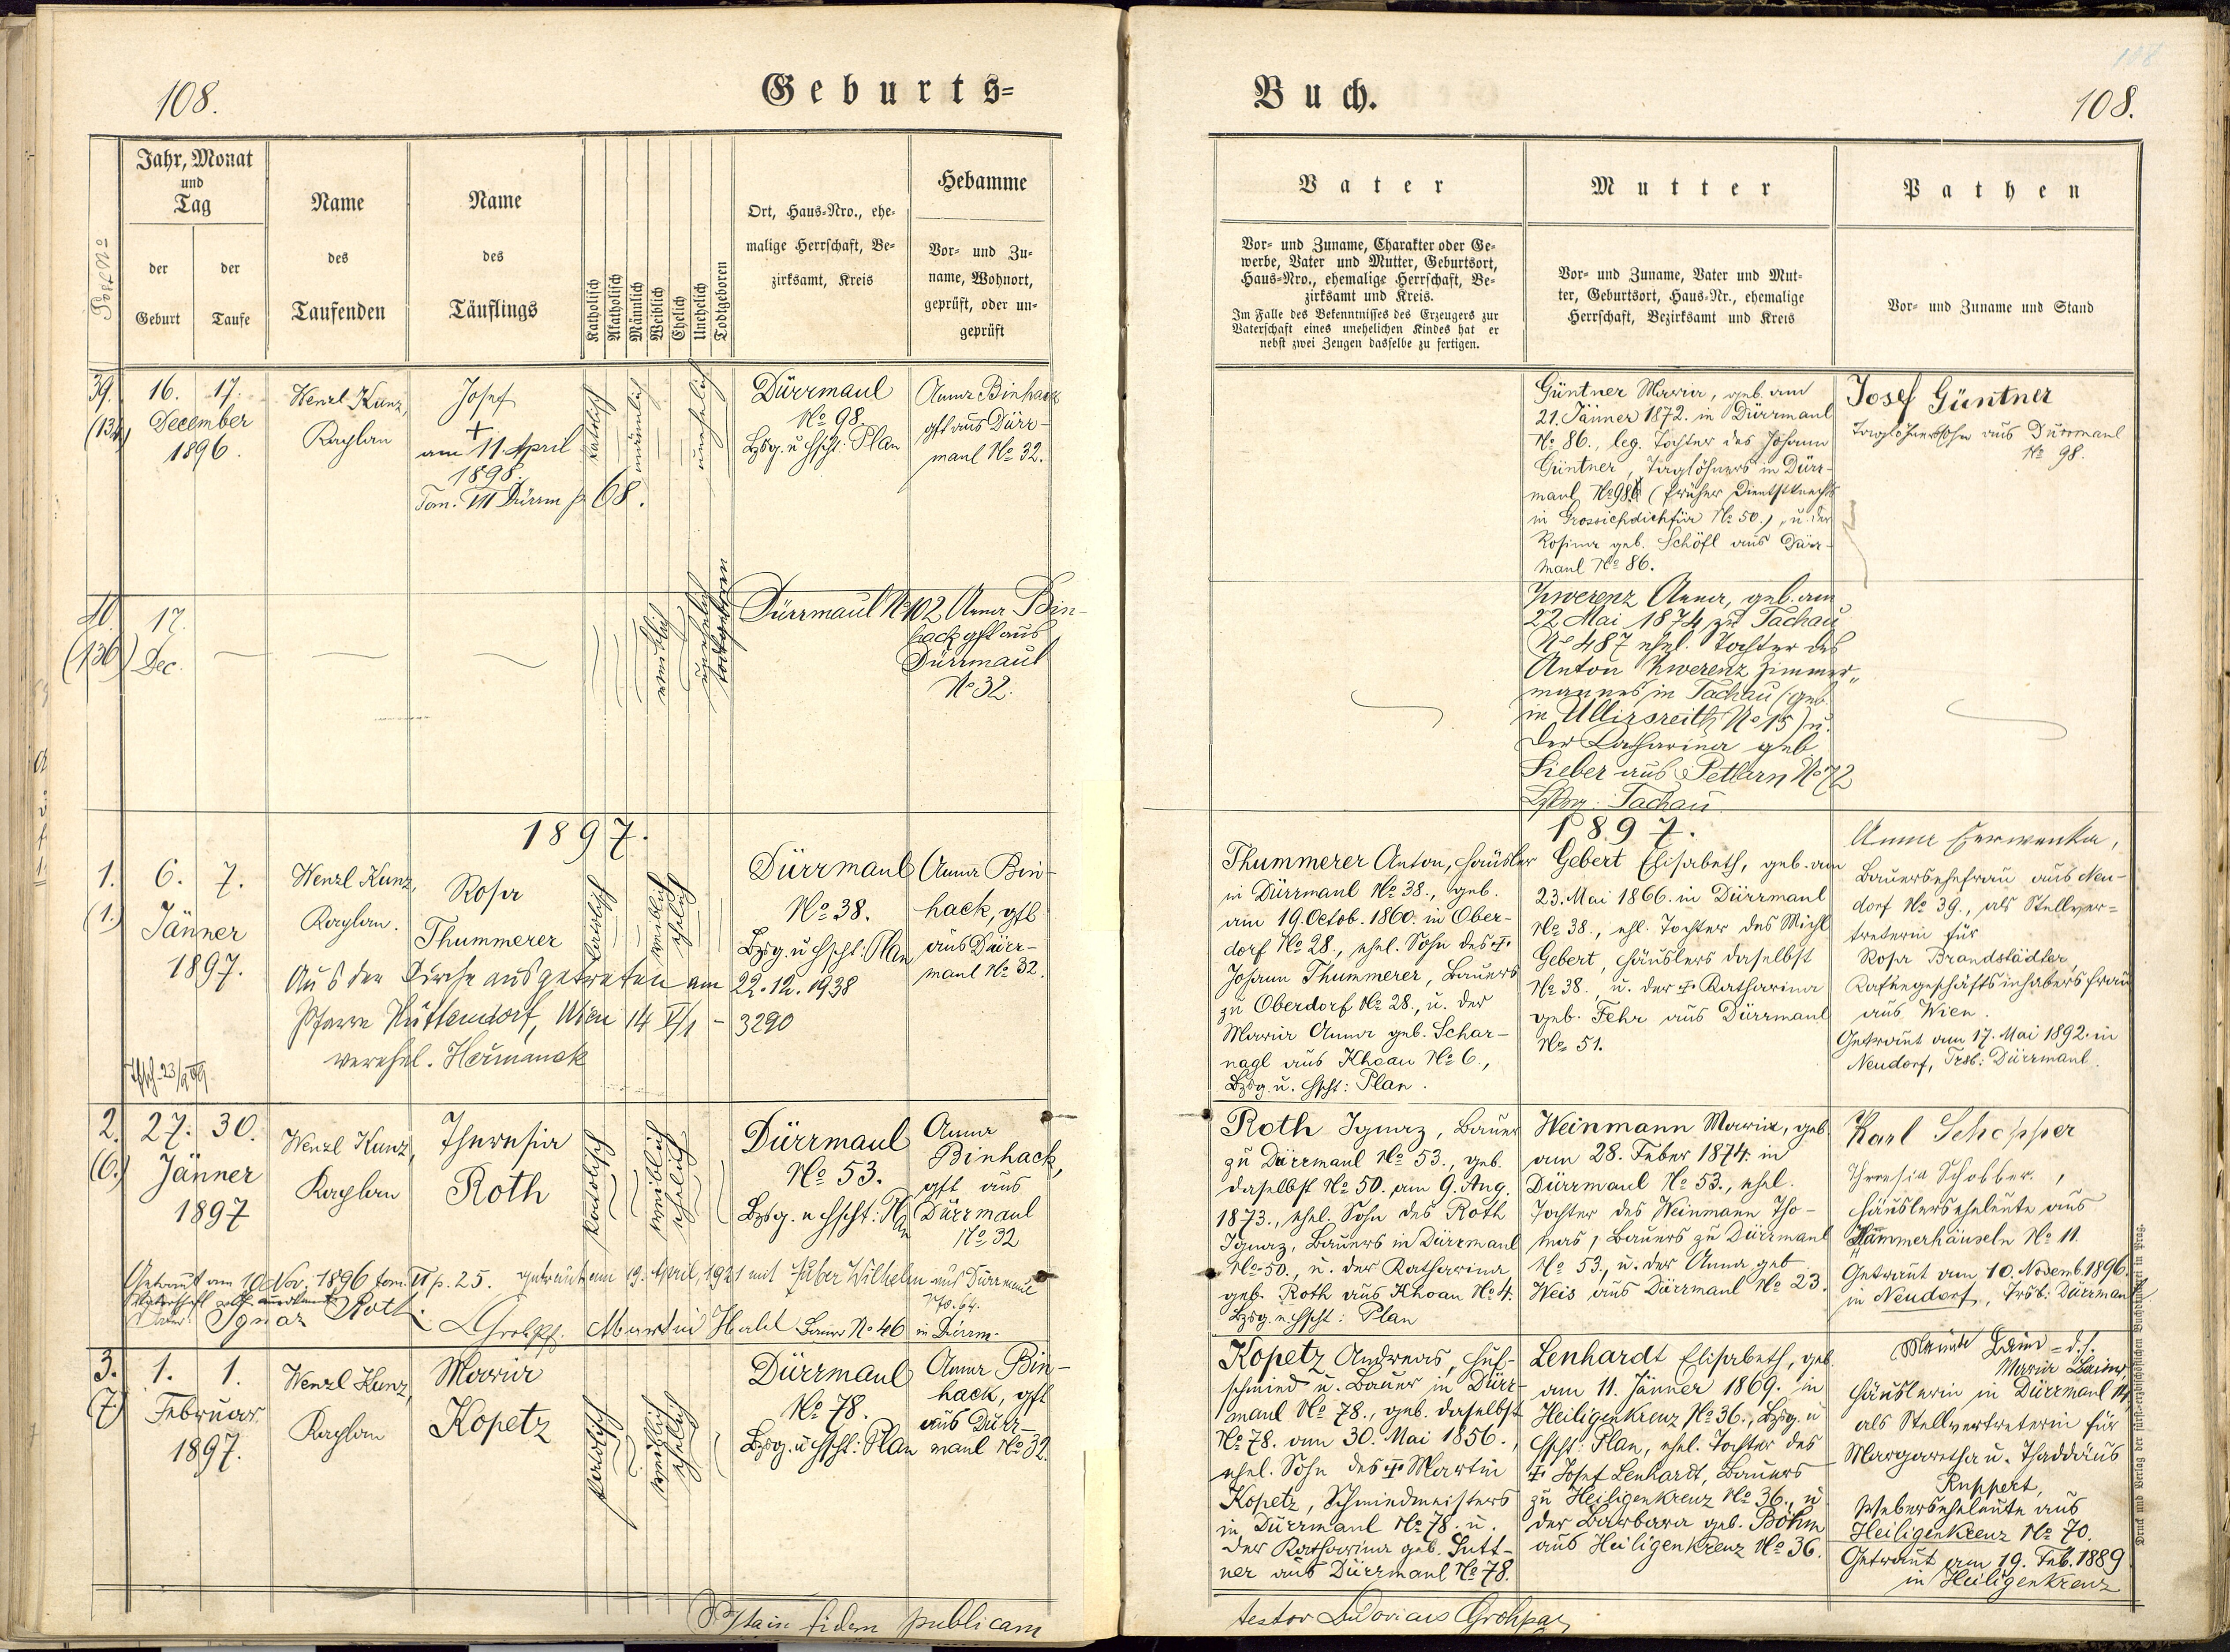 108.
Geburts=
Post No
Jahr, Monat
und
Tag
der
Geburt
der
Taufe
Name
des
Taufenden
Name
des
Täuflings
Katholisch
Akatholisch
Männlich
Weiblich
Ehelich
Unehelich
Todtgeboren
Ort, Haus=Nro., ehe=
malige Herrschaft, Be=
zirksamt, Kreis
Hebamme
Vor= und Zu=
name, Wohnort,
geprüft, oder un=
geprüft
39.
(134)
16. 17.
December
1896.
Wenzl Kunz,
Kaplan
Josef
+
am 11. April
1898.
Tom. VII Dürrm p 68.
katolisch
männlich
unehelich
Dürrmaul
No 98
Bzsg. u Hscht: Plan
Anna Binhack
gft aus Dürr-
maul No 32.
40
(136)
17.
Dec.
weiblich
unehelich
todtgeboren
Dürrmaul No 102
Anna Bin-
hack gft aus
Dürrmaul
No 32.
1897.
1.
(1.)
6. 7.
Jänner
1897.
Wenzl Kunz,
Kaplan.
Rosa
Thummerer
katolisch
weiblich
ehelich
Dürrmaul
No 38.
Bzsg. u Hscht: Plan
Anna Bin-
hack, gft
aus Dürr-
maul No 32.
Aus der Kirche ausgetreten am 22.12.1938
Pfarre Hütteldorf, Wien 14 - 3290
verehel. Hermanek
2.
(6.)
27. 30.
Jänner
1897
Wenzl Kunz,
Kaplan
Theresia
Roth
katolisch
weiblich
ehelich
Dürrmaul
No 53.
Bzsg. u Hscht: Plan
Anna
Binhack,
gft aus
Dürrmaul
No 32
Getraut am 10 Nov. 1896 tom. VI p. 25. getraut am 19. April, 1921 mit Huber Wilhelm aus Dürrmaul
No. 64.
Vater Ignaz Roth
Martin Habl Bauer No 46 in Dürrm.
3.
(7.)
1. 1.
Februar
1897.
Wenzl Kunz,
Kaplan
Maria
Kopetz
katolisch
weiblich
ehelich
Dürrmaul
No 78.
Bzsg. u Hscht: Plan
Anna Bin-
hack, gft
aus Dürr-
maul No 32.
fidem publicam
Buch.
108.
Vater
Vor= und Zuname, Charakter oder Ge=
werbe, Vater und Mutter, Geburtsort,
Haus=Nro., ehemalige Herrschaft, Be=
zirksamt und Kreis.
Im Falle des Bekenntnisses des Erzeugers zur
Vaterschaft eines unehelichen Kindes hat er
nebst zwei Zeugen dasselbe zu fertigen.
Mutter
Vor= und Zuname, Vater und Mut=
ter, Geburtsort, Haus=Nr., ehemalige
Herrschaft, Bezirksamt und Kreis
Pathen
Vor= und Zuname und Stand
Güntner Maria, geb. am
21. Jänner 1872. in Dürrmaul
No 86., leg. Tochter des Johann
Güntner, Taglöhners in Dürr-
maul No 98. (früher Dienstknecht
in Grossichdichfür No 50.), u. der
Rosina geb. Schöfl aus Dürr-
maul No 86.
Josef Güntner
Taglöhnerssohn aus Dürrmaul
No 98.
Zwerenz Anna, geb. am
22 Mai 1874 zu Tachau
No 487 ehel. Tochter des
Anton Zwerenz Zimmer-
mannes in Tachau (geb
in Ullisreith No 15) u.
der Katharina geb.
Sieber aus Petlarn No 72
Tachau
1897.
Thummerer Anton, Häusler
in Dürrmaul No 38., geb.
am 19. Octob. 1860. in Ober-
dorf No 28., ehel. Sohn des +
Johann Thummerer, Bauers
zu Oberdorf No 28., u. der
Maria Anna geb. Schar-
nagl aus Khoau No 6.,
Bzsg. u. Hscht: Plan.
Gebert Elisabeth, geb. am
23. Mai 1866. in Dürrmaul
No 38., ehl. Tochter des Michl
Gebert, Häuslers daselbst
No 38., u. der + Katharina
geb. Fehr aus Dürrmaul
No 51.
Anna Czerwenka,
Bauersehefrau aus Neu-
dorf No 39., als Stellver=
treterin für
Rosa Brandstädter,
Kafeegeschäftsinhabersfrau
aus Wien.
Getraut am 17. Mai 1892. in
Neudorf, Trsb: Dürrmaul.
Roth Ignaz, Bauer
zu Dürrmaul No 53., geb.
daselbst No 50. am 9. Aug.
1873., ehel. Sohn des Roth
Ignaz, Bauers in Dürrmaul
No 50., u. der Katharina
geb. Roth aus Khoau No 4.
Bzsg. u Hscht: Plan
Weinmann Maria, geb
am 28. Feber 1874. in
Dürrmaul No 53., ehel.
Tochter des Weinmann Tho-
mas, Bauers zu Dürrmaul
No 53., u. der Anna geb
Weis aus Dürrmaul No 23.
Karl Schopper
Theresia Schober.,
Häuslerseheleute aus
Hammerhäuseln No 11.
Getraut am 10. Novemb. 1896.
in Neudorf, Trsb: Dürrmaul
Kopetz Andreas, Huf-
schmied u. Bauer in Dürr-
maul No 78., geb. daselbst
No 78. am 30. Mai 1856.,
ehel. Sohn des + Martin
Kopetz, Schmiedmeisters
in Dürrmaul No 78. u.
der Katharina geb. Sutt-
ner aus Dürrmaul No 78.
Lenhardt Elisabeth, geb.
am 11. Jänner 1869. in
Heiligenkreuz No 36., Bzsg. u
Hscht: Plan, ehel. Tochter des
+ Josef Lenhardt, Bauers
zu Heiligenkreuz No 36., u
der Barbara geb. Böhm
aus Heiligenkreuz No 36.
d. h.
Maria
Häuslerin in Dürrmaul
als Stellvertreterin für
Margaretha u. Thaddäus
Ruppert,
Weberseheleute aus
Heiligenkreuz No 70.
Getraut am 19. Feb. 1889
in Heiligenkreuz
testor Ludovicus
Druck und Verlag der fürst=erzbischöflichen Buchdruckerei in Prag.